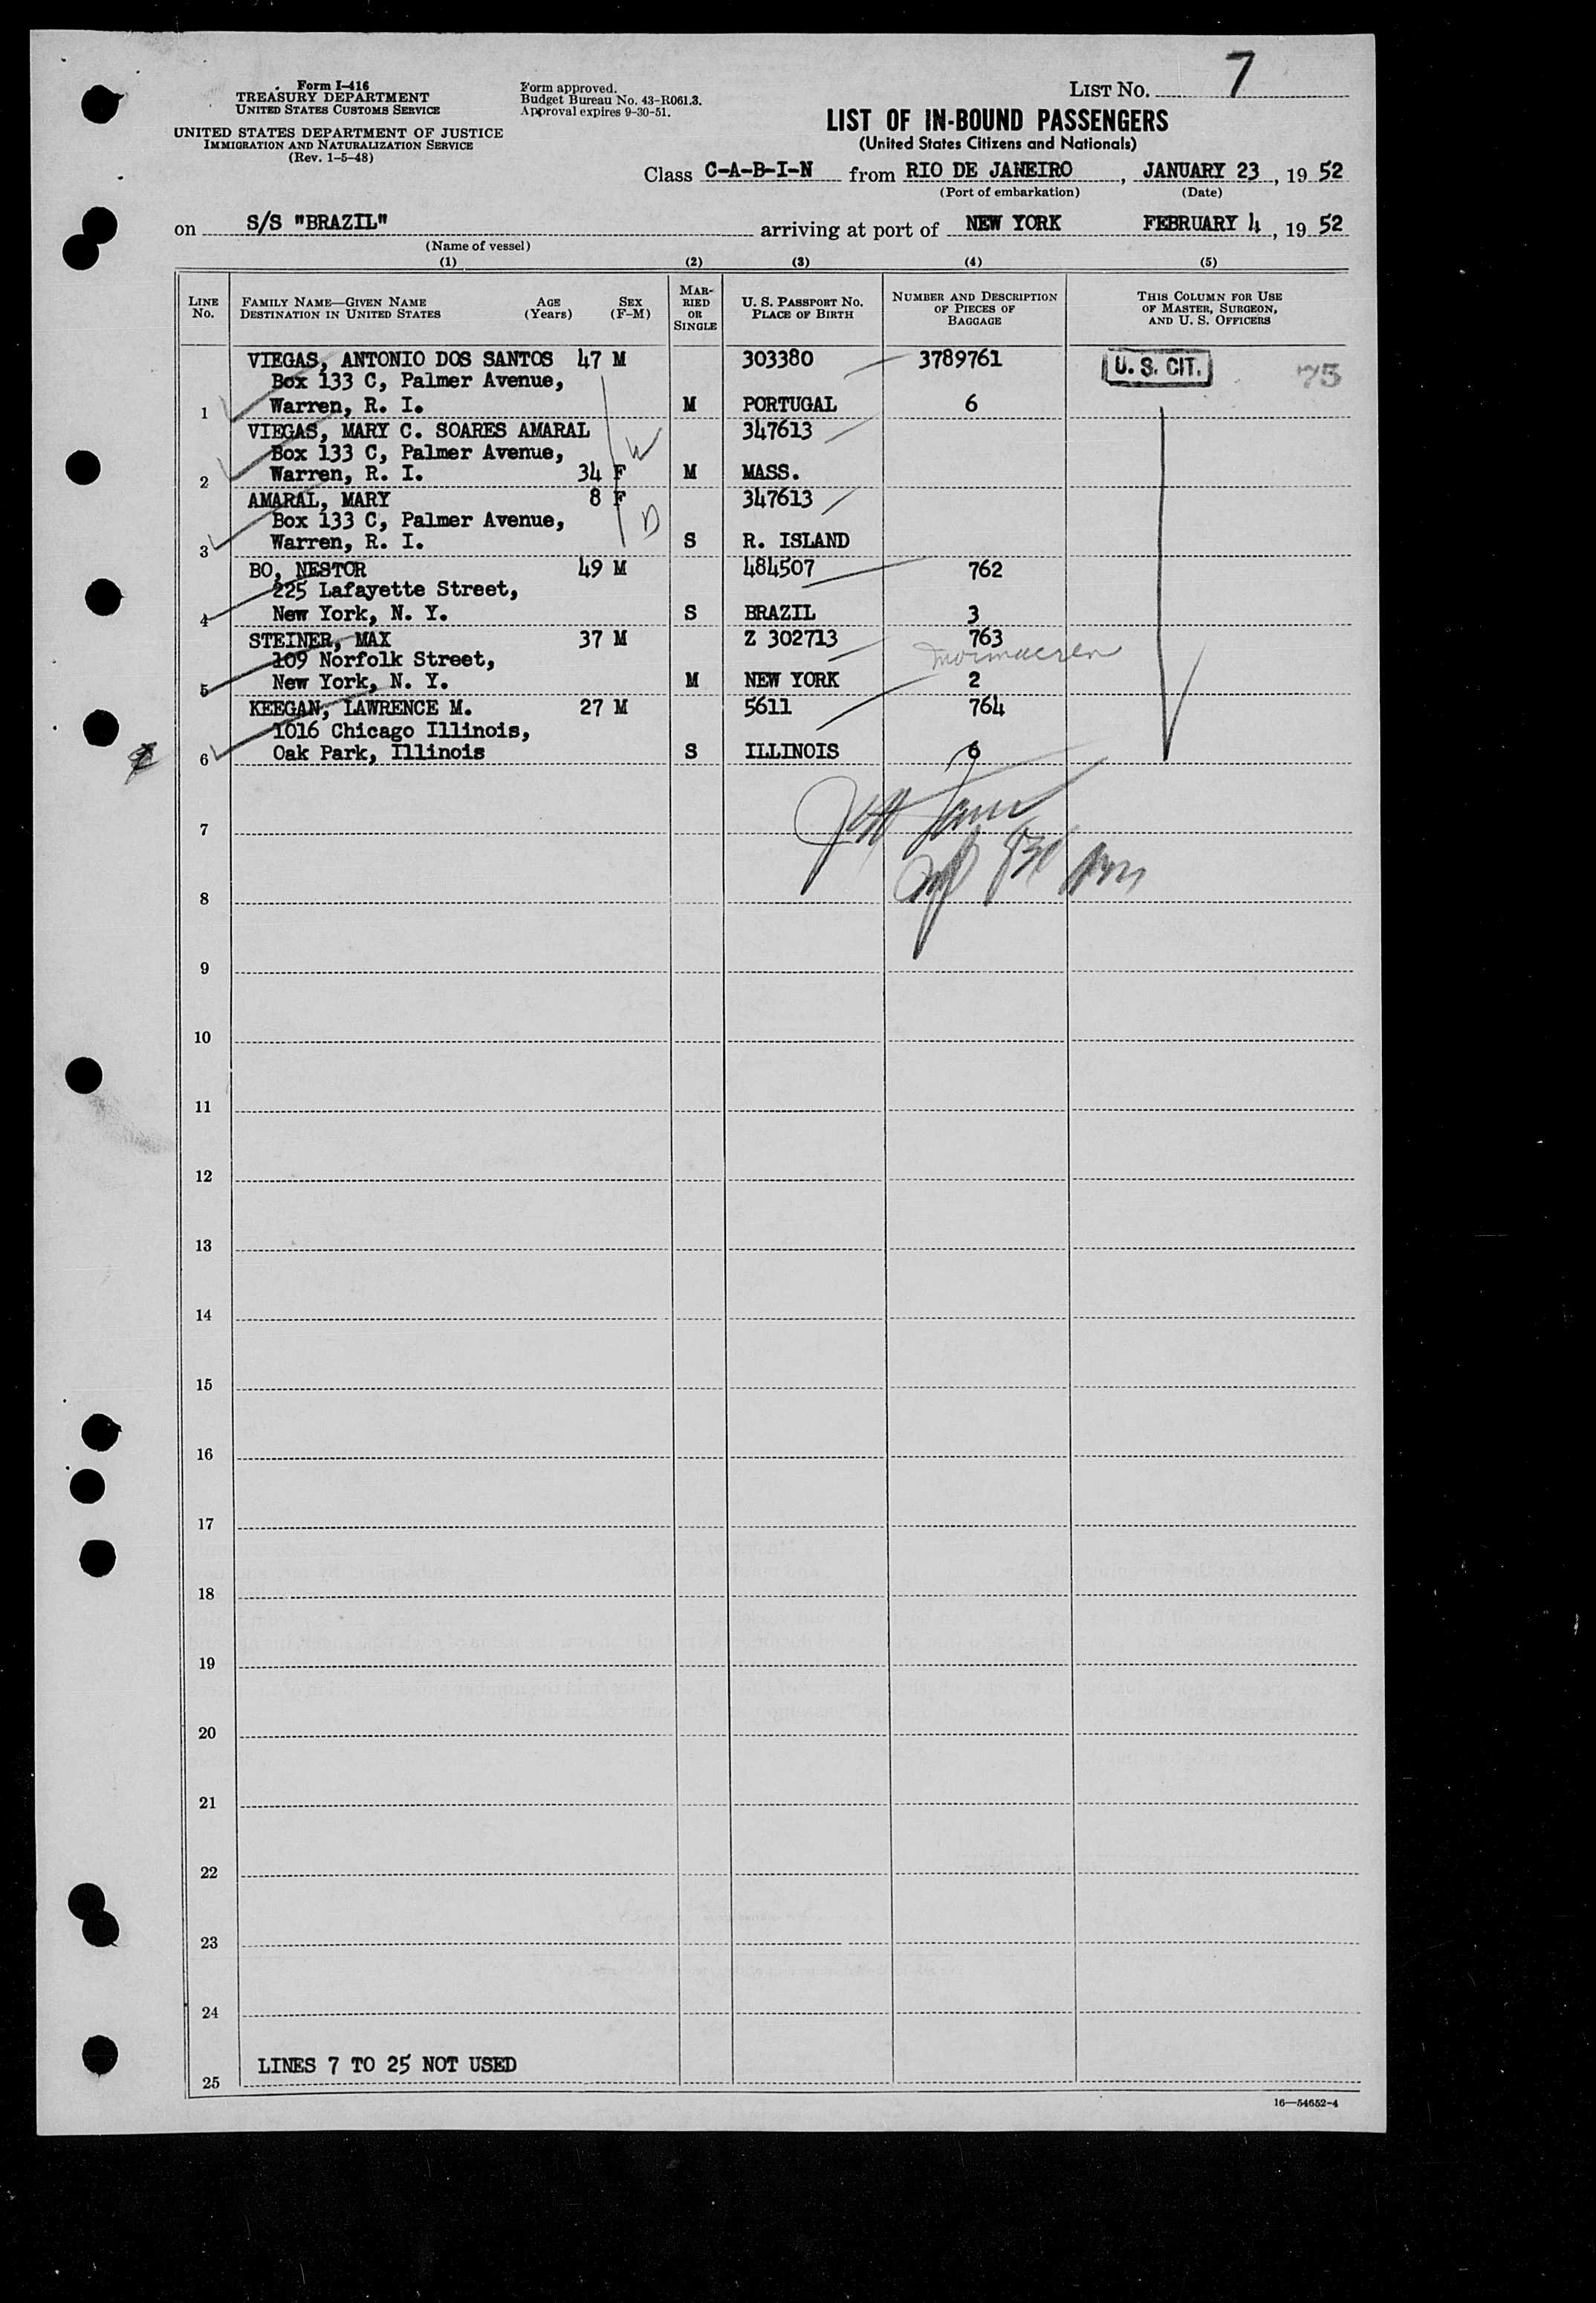 Form I-416
TREASURY DEPARTMENT
UNITED STATES CUSTOMS SERVICE
UNITED STATES DEPARTMENT OF JUSTICE
IMMIGRATION AND NATURALIZATION SERVICE
(Rev. 1-5-48)
Form approved.
Budget Bureau No. 43-R061.3.
Approval expires 9-30-51.
LIST NO. 7
LIST OF IN-BOUND PASSENGERS
(United States Citizens and Nationals)
Class C-A-B-I-N from RIO DE JANEIRO, JANUARY 23, 19 52
(Port of embarkation) (Date)
on S/S "BRAZIL" arriving at port of NEW YORK FEBRUARY 4, 19 52
(Name of vessel)
(1) (2) (3) (4) (5)
LINE No.
FAMILY NAME—GIVEN NAME
DESTINATION IN UNITED STATES
AGE (Years)
SEX (F-M)
MARRIED OR SINGLE
U. S. PASSPORT NO.
PLACE OF BIRTH
NUMBER AND DESCRIPTION OF PIECES OF BAGGAGE
THIS COLUMN FOR USE OF MASTER, SURGEON, AND U. S. OFFICERS
VIEGAS, ANTONIO DOS SANTOS 47 M 303380 3789761 U. S. CIT. 75
Box 133 C, Palmer Avenue,
1 Warren, R. I. M PORTUGAL 6
VIEGAS, MARY C. SOARES AMARAL 347613
Box 133 C, Palmer Avenue, W
2 Warren, R. I. 34 F M MASS.
AMARAL, MARY 8 F 347613
Box 133 C, Palmer Avenue, D
3 Warren, R. I. S R. ISLAND
BO, NESTOR 49 M 484507 762
225 Lafayette Street,
4 New York, N. Y. S BRAZIL 3
STEINER, MAX 37 M Z 302713 763
109 Norfolk Street,
5 New York, N. Y. M NEW YORK 2
KEEGAN, LAWRENCE M. 27 M 5611 764
1016 Chicago Illinois,
6 Oak Park, Illinois S ILLINOIS 6
7
8
9
10
11
12
13
14
15
16
17
18
19
20
21
22
23
24
LINES 7 TO 25 NOT USED
25
16—54652-4